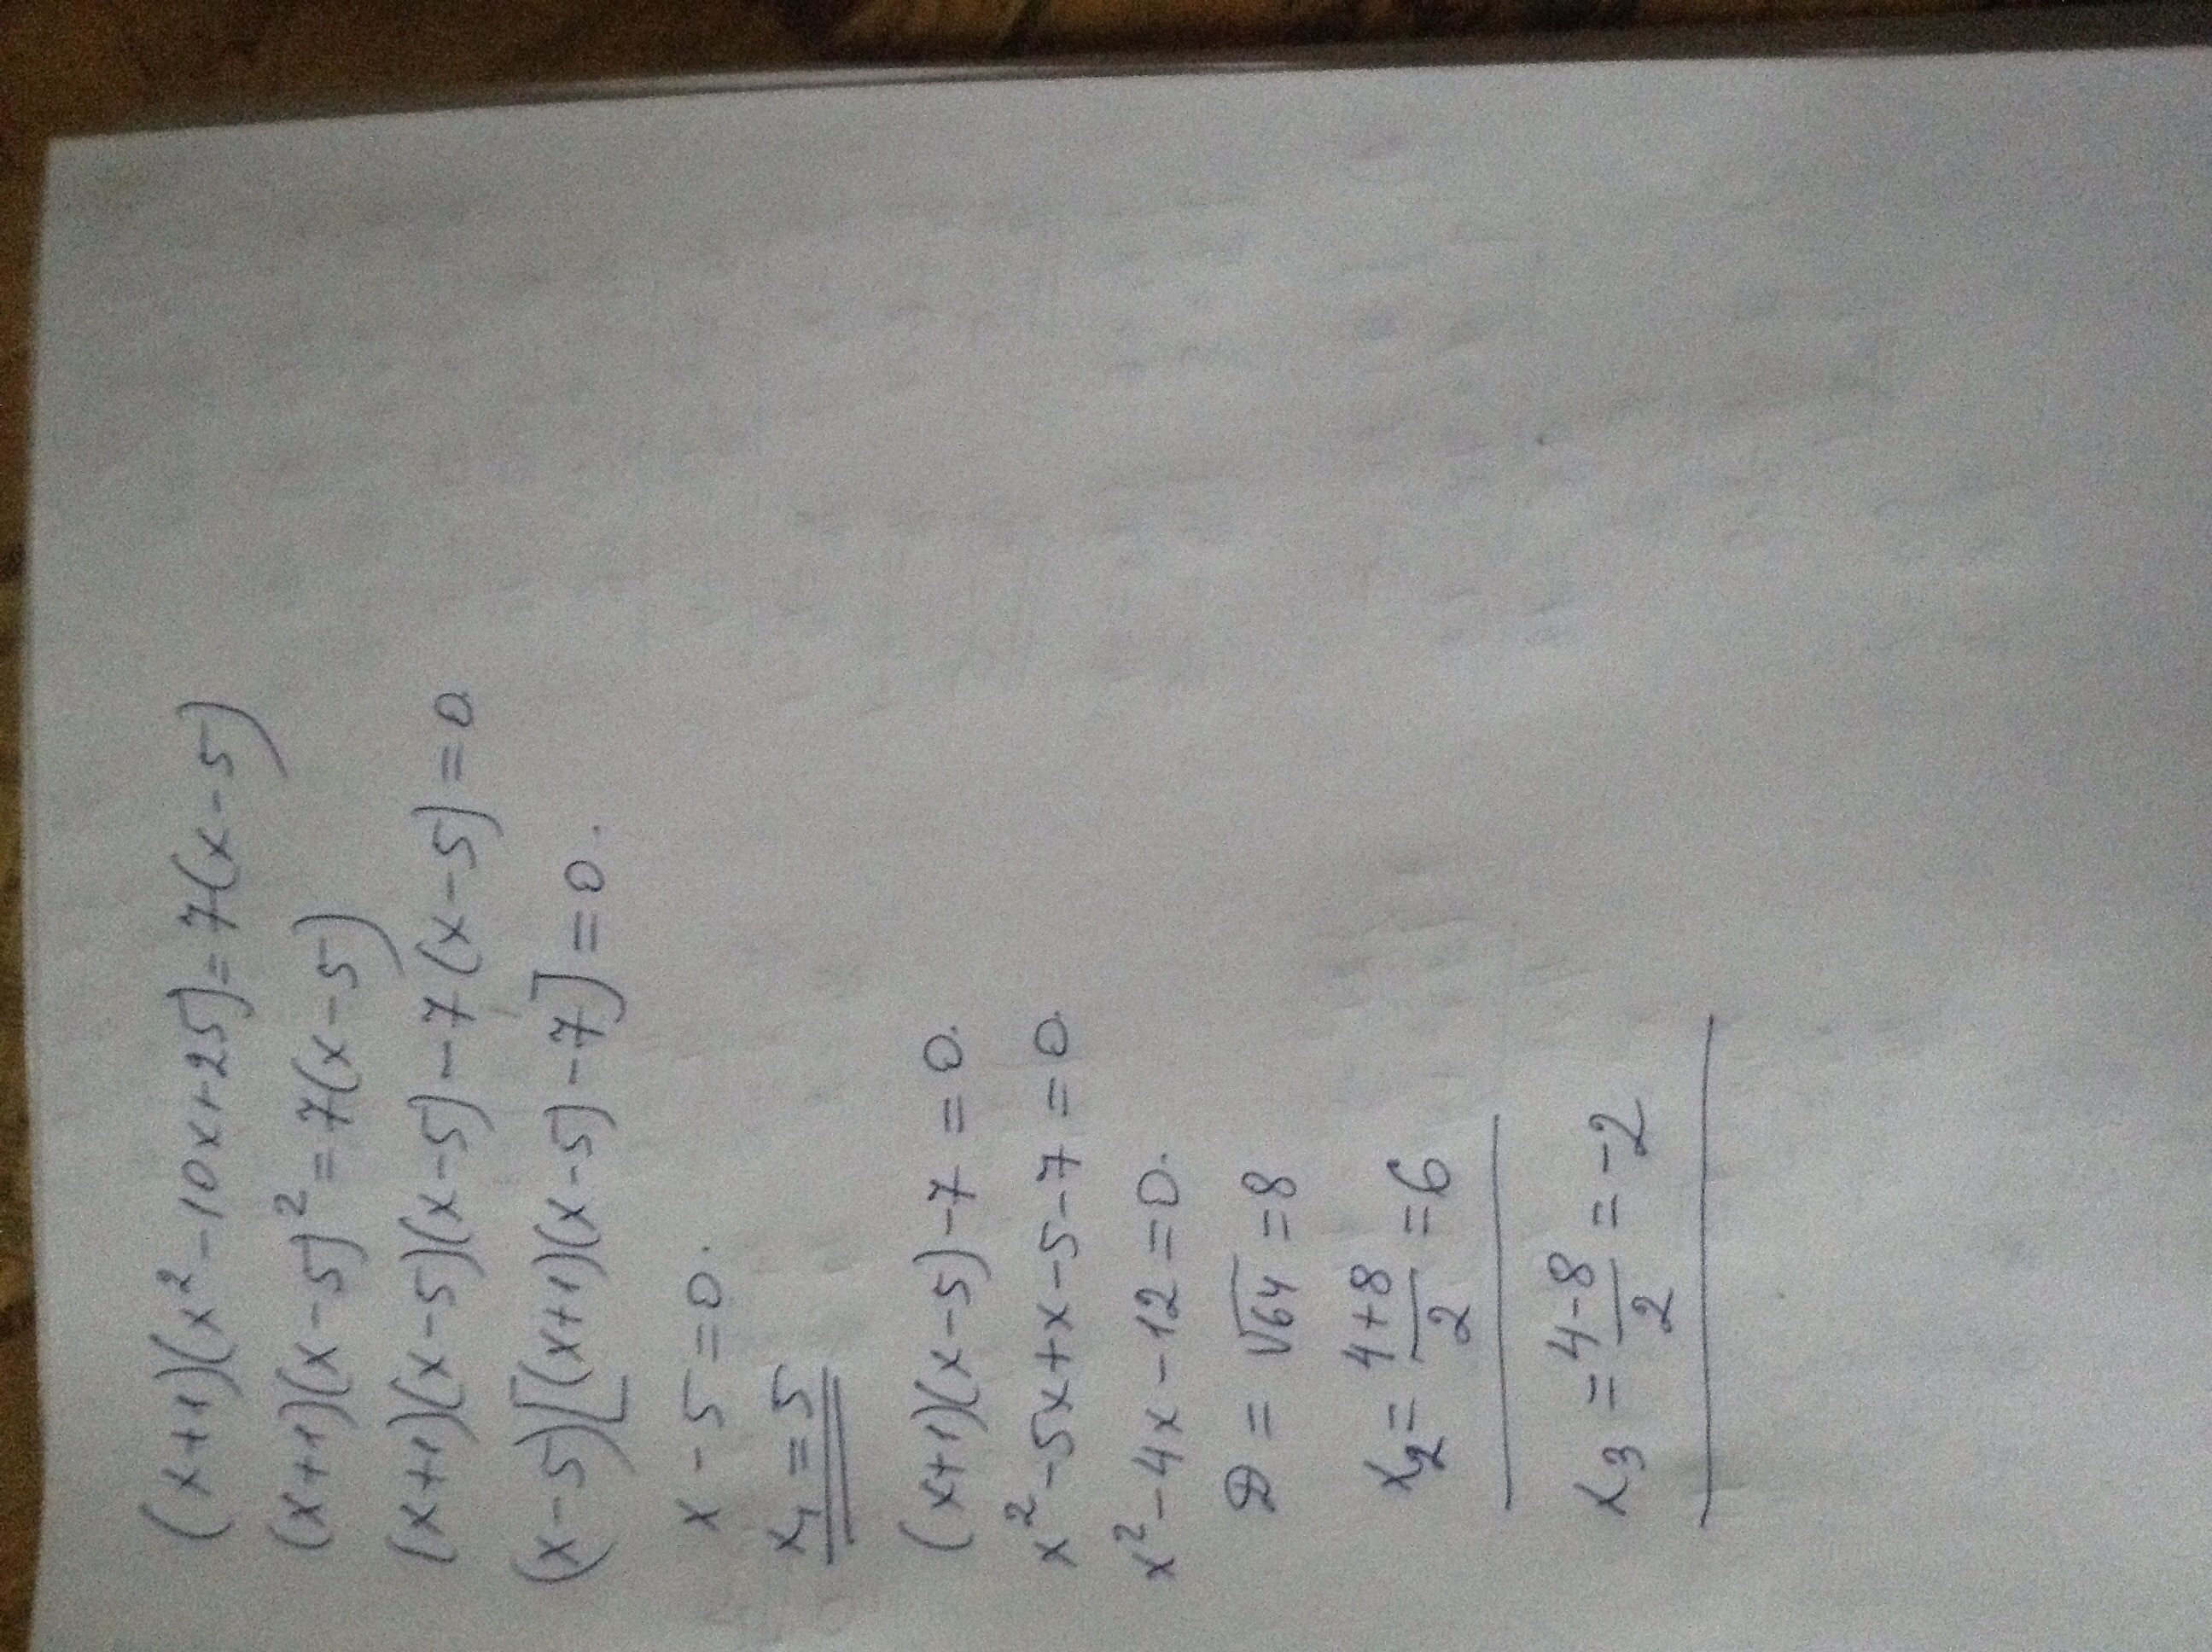 (x+1)(x²-10x+25)=7(x-5)
(x+1)(x-5)²=7(x-5)
(x+1)(x-5)(x-5)-7(x-5)=0.
(x-5)[(x+1)(x-5)-7]=0.
x-5=0.
x₁=5
(x+1)(x-5)-7=0.
x²-5x+x-5-7=0.
x²-4x-12=0.
D=√64=8
x₂=(4+8)/2=6
x₃=(4-8)/2=-2